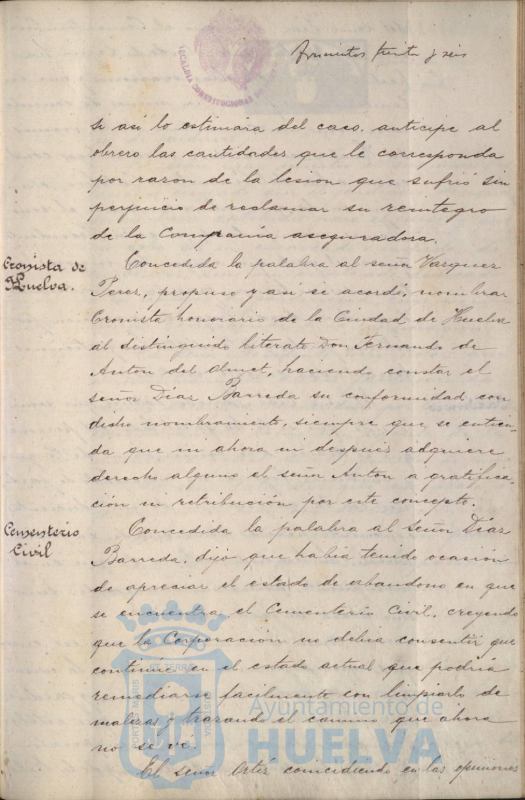 treinta y seis
si así lo estimara del caso. anticipe al
obrero las cantidades que le corresponda
por razon de la lesion que sufrió sin
perjuicio de reclamar su reintegro
de la Compañia aseguradora.
Cronista de
Huelva.
Concedida la palabra al señor Vazquez
Perez, propuso y así se acordó, nombrar
Cronista honorario de la Ciudad de Huelva
al distinguido literato Don Fernando de
Anton del Olmet, haciendo constar el
señor Díaz Barreda su conformidad con
dicho nombramiento, siempre que se entien-
da que ni ahora ni despues adquiere
derecho alguno el señor Anton a gratifica-
ción ni retribución por este concepto.
Cementerio
Civil
Concedida la palabra al señor Díaz
Barreda, dijo que había tenido ocasión
de apreciar el estado de abandono en que
se encuentra el Cementerio Civil, creyendo
que la Corporación no debia consentir que
continúe en el estado actual que podría
remediarse facilmente con limpiarlo de
malezas y trazando el camino que ahora
no se vé.
El señor Ortiz coincidiendo en las opiniones
Ayuntamiento de
HUELVA